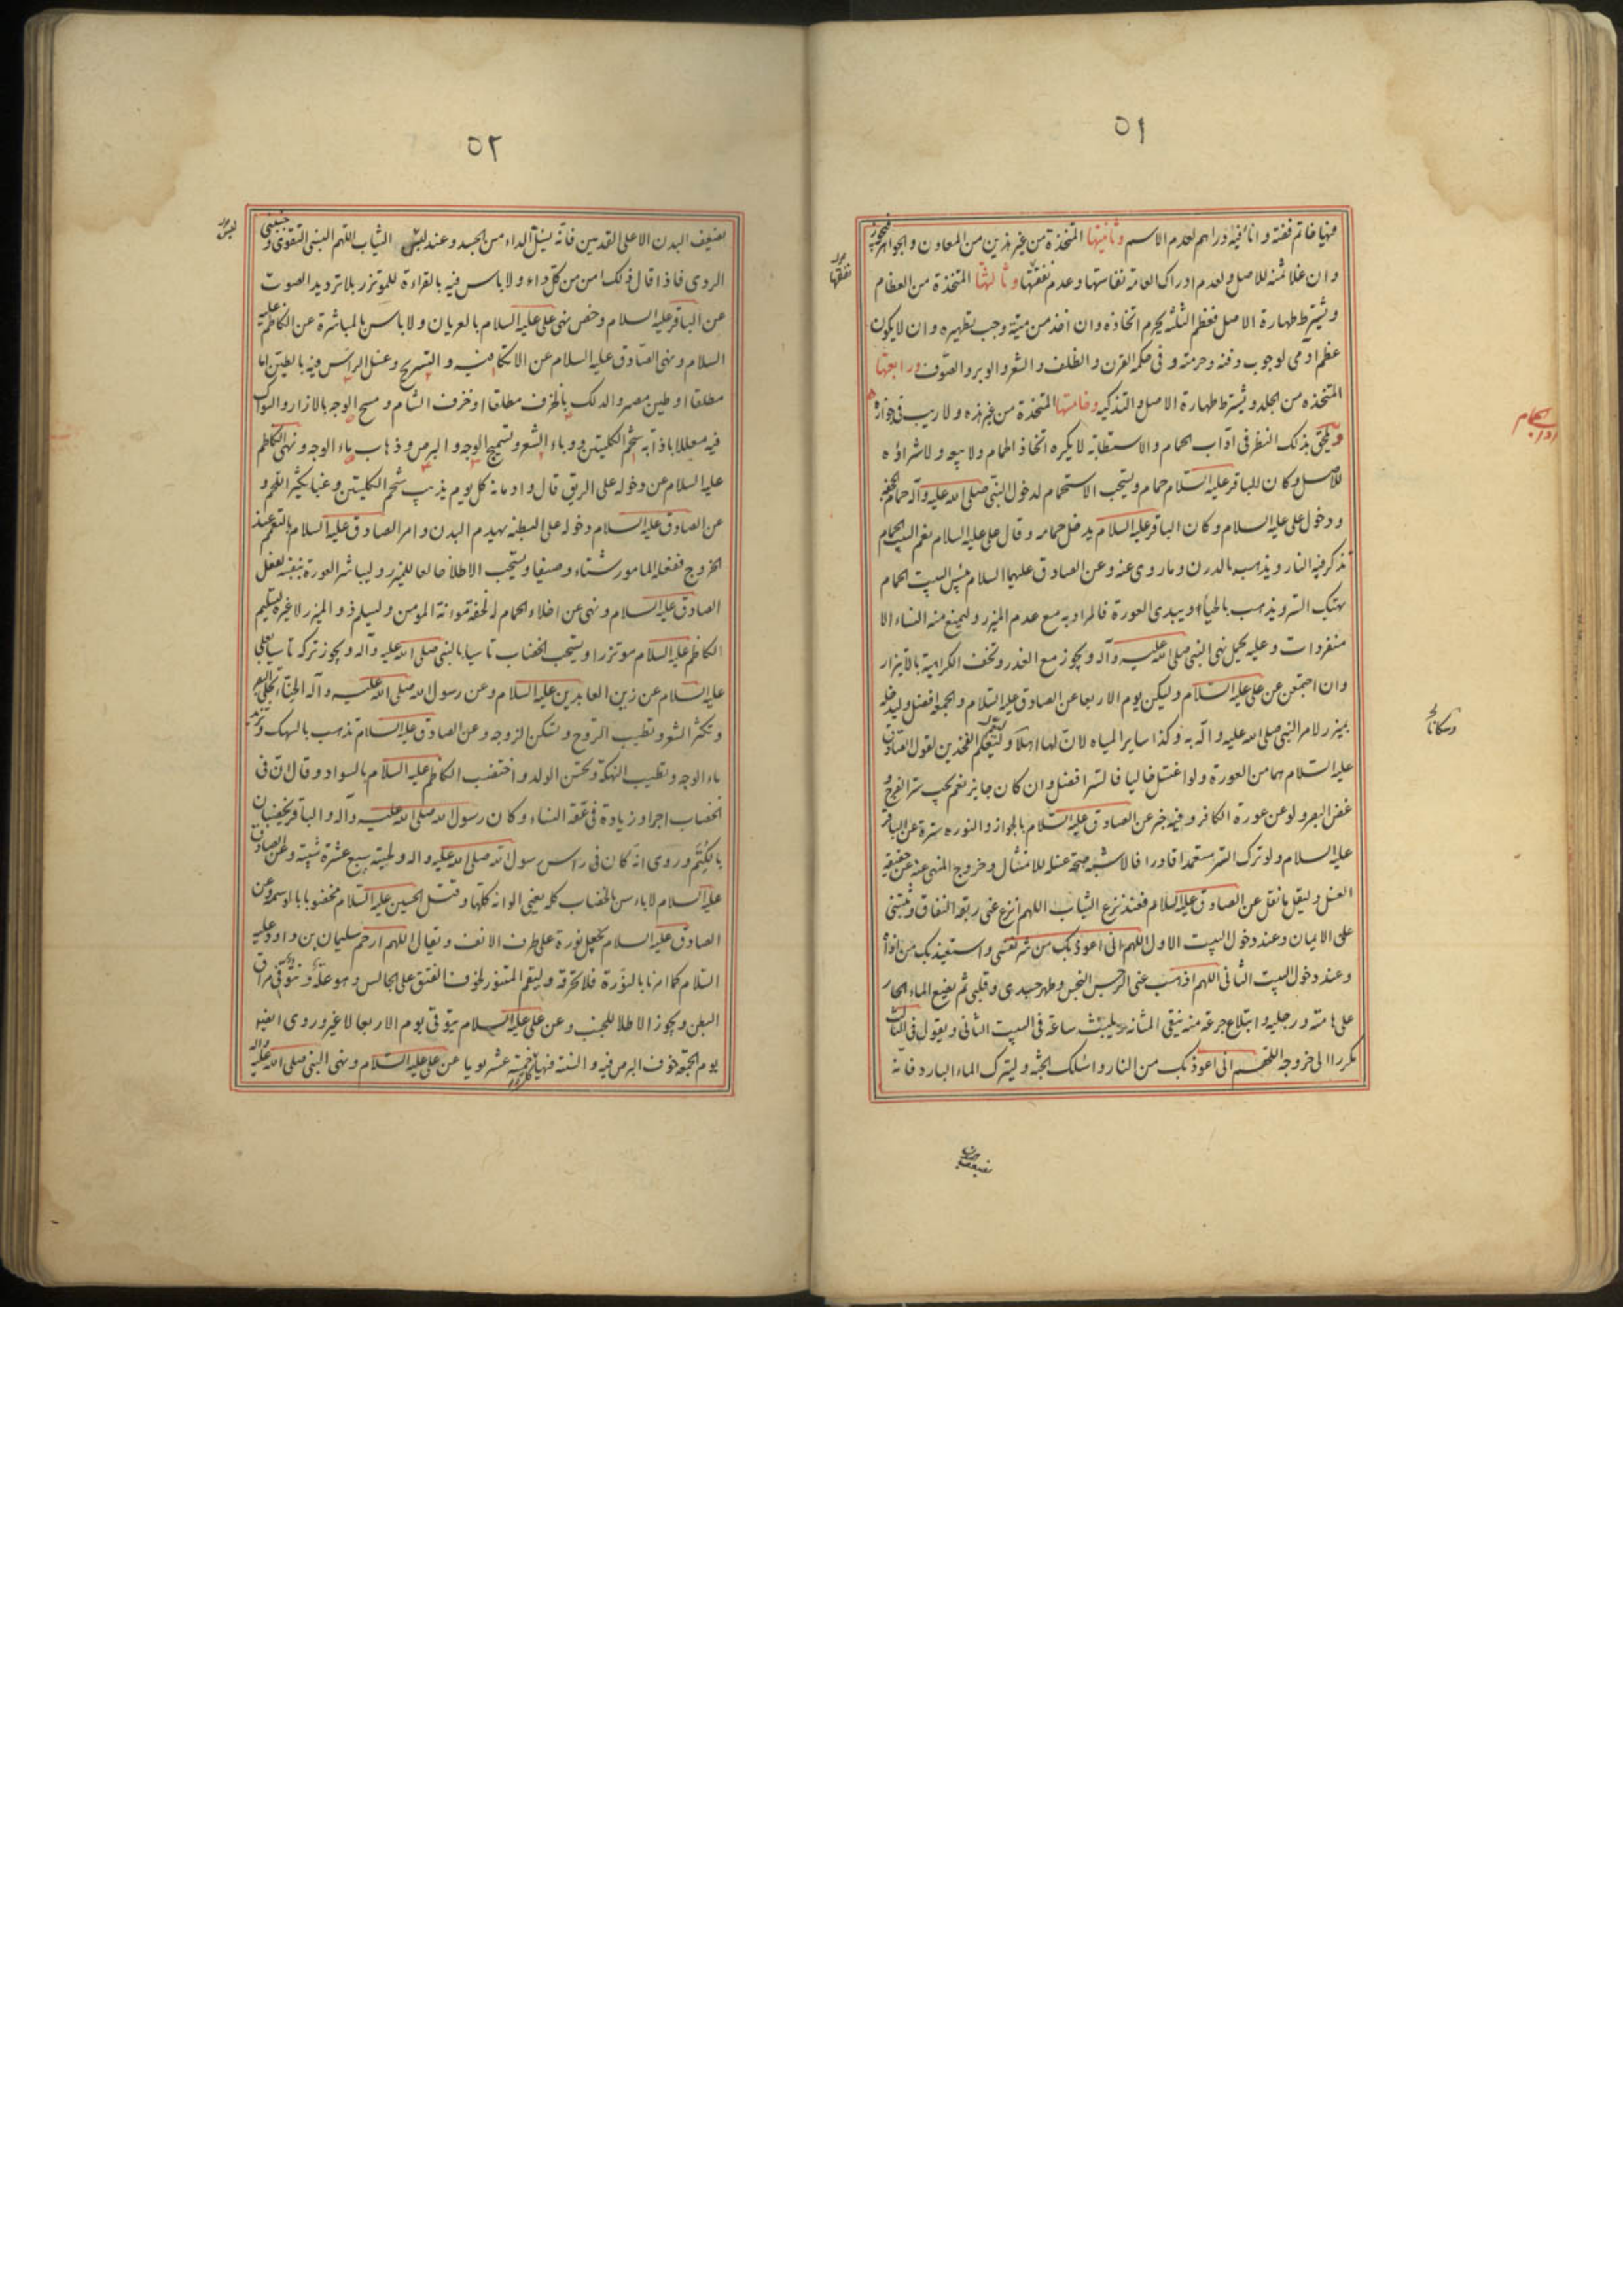 ٥١
منها خاتم فضة واناء فيه دراهم لعدم الاسم وثانيتها المتخذة من غير هذين من المعادن والجواهر فيجوز
وان غلا ثمنه للاصل ولعدم ادراك العامة نفاستها وعدم نفقتها وثالثها المتخذة من العظام
ويشترط طهارة الاصل فعظم الثلثه يحرم اتخاذه وان اخذ من ميتة وجب تطهيره وان لا يكون
عظم ادمى لوجوب دفنه وحرمته وفى حكمه القرن والظلف والشعر والوبر والصوف ورابعتها
المتخذه من الجلد ويشترط طهارة الاصل والتذكيه وخامستها المتخذة من غير هذه ولا ريب فى جوازه
ويلحق بذلك النظر فى اداب الحمام والاستطابه لا يكره اتخاذ الحمام ولا بيعه ولا شراؤه
للاصل وكان للباقر عليه السلام حمام ويستحب الاستحمام لدخول النبى صلى الله عليه وآله حمام الجحفه
ودخول على عليه السلام وكان الباقر عليه السلام يدخل حمامه وقال على عليه السلام نعم البيت الحمام
تذكر فيه النار ويذهب بالدرن وما روى عنه وعن الصادق عليهما السلام بئس البيت الحمام
يهتك الستر ويذهب بالحياء ويبدى العورة فالمراد به مع عدم الميزر وليمنع منه النساء الا
منفردات وعليه يحمل نهى النبى صلى الله عليه وآله ويجوز مع العذر وتخف الكراهية بالاتيزار
وان اجتمعن عن على عليه السلام وليكن يوم الاربعا عن الصادق عليه السلام والجمعه افضل وليدخله
بميزر لامر النبى صلى الله عليه واله به وكذا ساير المياه لان لها اهلا الفخذين لقول الصادق
عليه السلام هما من العورة ولو اغتسل خاليا فالستر افضل وان كان جايز نعم يجب ستر الفرج و
غض البصر ولو عن عورة الكافر وفيه خبر عن الصادق عليه السلام بالجواز والنوره سترة عن الباقر
عليه السلام ولو ترك الستر متعمدا قادرا فالاشبه صحة غسله للامتثال وخروج المنهى عنه عن حقيقة
الغسل وليقل ما نقل عن الصادق عليه السلام فعند نزع الثياب اللهم انزع عنى ربقة النفاق وثبتنى
على الايمان وعند دخول البيت الاول اللهم انى اعوذ بك من شر نفسى واستعيذ بك من اذاه
وعند دخول البيت الثانى اللهم اذهب عنى الرجس النجس وطهر جسدى وقلبى ثم يضع الماء الحار
على هامته ورجليه وابتلاع جرعة منه ينقى المثانه ويلبث ساعة فى البيت الثانى ويقول فى الثالث
مكررا الى خروجه اللهم انى اعوذ بك من النار واسئلك الجنة وليترك الماء البارد فانه
نفقتها
اداب الحمام
٥٢
يضعف البدن الا على القدمين فانه يسل الداء من الجسد وعند لبس الثياب اللهم البسنى التقوى وجنبنى
الردى فاذا قال ذلك امن من كل داء ولا باس فيه بالقراءة للموتزر بلا ترديد الصوت
عن الباقر عليه السلام وخص نهى على عليه السلام بالعريان ولا باس بالمباشرة عن الكاظم عليه
السلام ونهى الصادق عليه السلام عن الاتكا فيه والتسريح وغسل الراس فيه بالطين اما
مطلقا او طين مصر والدلك بالخزف مطلقا او خزف الشام ومسح الوجه بالازار والسواك
فيه معللا باذابه شحم الكليتين ووباء الشعر وتسميج الوجه والبرص وذهاب ماء الوجه ونهى الكاظم
عليه السلام عن دخوله على الريق قال وادمانه كل يوم يذيب شحم الكليتين وغبا يكثر اللحم و
عن الصادق عليه السلام دخوله على البطنه يهدم البدن وامر الصادق عليه السلام بالتعمم عند
الخروج ففعله المامور شتاء وصيفا ويستحب الاطلا خالعا للميزر وليباشر العورة بنفسه لفعل
الصادق عليه السلام ونهى عن اخلاء الحمام له لخفة مؤانة المومن وليسلم ذو الميزر لا غيره لتسليم
الكاظم عليه السلام موتزرا ويستحب الخضاب تاسيا بالنبى صلى الله عليه وآله ويجوز تركه تاسيا بعلى
عليه السلام عن زين العابدين عليه السلام وعن رسول الله صلى الله عليه وآله الحناء يجلى البصر
ويكثر الشعر ويطيب الروح ويسكن الزوجه وعن الصادق عليه السلام تذهب بالسهك وتزيد
ماء الوجه وتطيب النهكة وتحسن الولد واختضب الكاظم عليه السلام بالسواد وقال ان فى
الخضاب اجرا وزيادة فى عفة النساء وكان رسول الله صلى الله عليه وآله والباقر يخضبان
بالكتم وروى انه كان فى راس رسول الله صلى الله عليه واله ولحيته سبع عشرة شيبة وعن الصادق
عليه السلام لا باس بالخضاب كله يعنى الوانه كلها وقتل الحسين عليه السلام مخضوبا بالوسمه وعن
الصادق عليه السلام يجعل نورة على طرف الانف ويقال اللهم ارحم سليمان بن داود عليه
السلام كما امرنا بالنورة فلا تحرقه وليقم المتنور لخوف الفتق على الجالس وهو علة ونتو فى مراق
البطن ويجوز الاطلا للجنب وعن على عليه السلام يتوقى يوم الاربعا لا غير وروى ايضا
يوم الجمعه خوف البرص فيه والسنة فيها خمسة عشر يوما عن على عليه السلام ونهى النبى صلى الله عليه واله
لبس